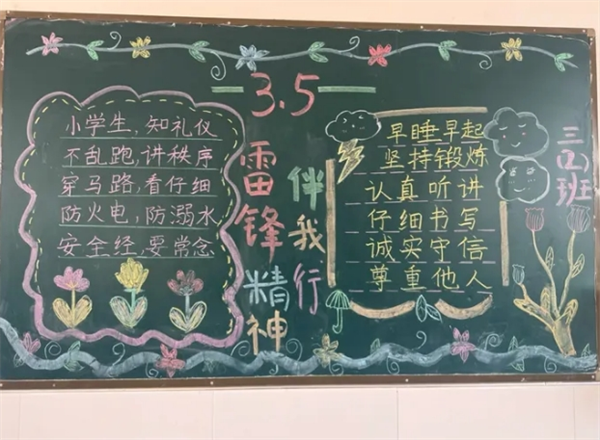 3.5
雷锋精神
伴我行
小学生，知礼仪
不乱跑，讲秩序
穿马路，看仔细
防火电，防溺水
安全经，要常念
早睡早起
坚持锻炼
认真听讲
仔细书写
诚实守信
尊重他人
三(四)班